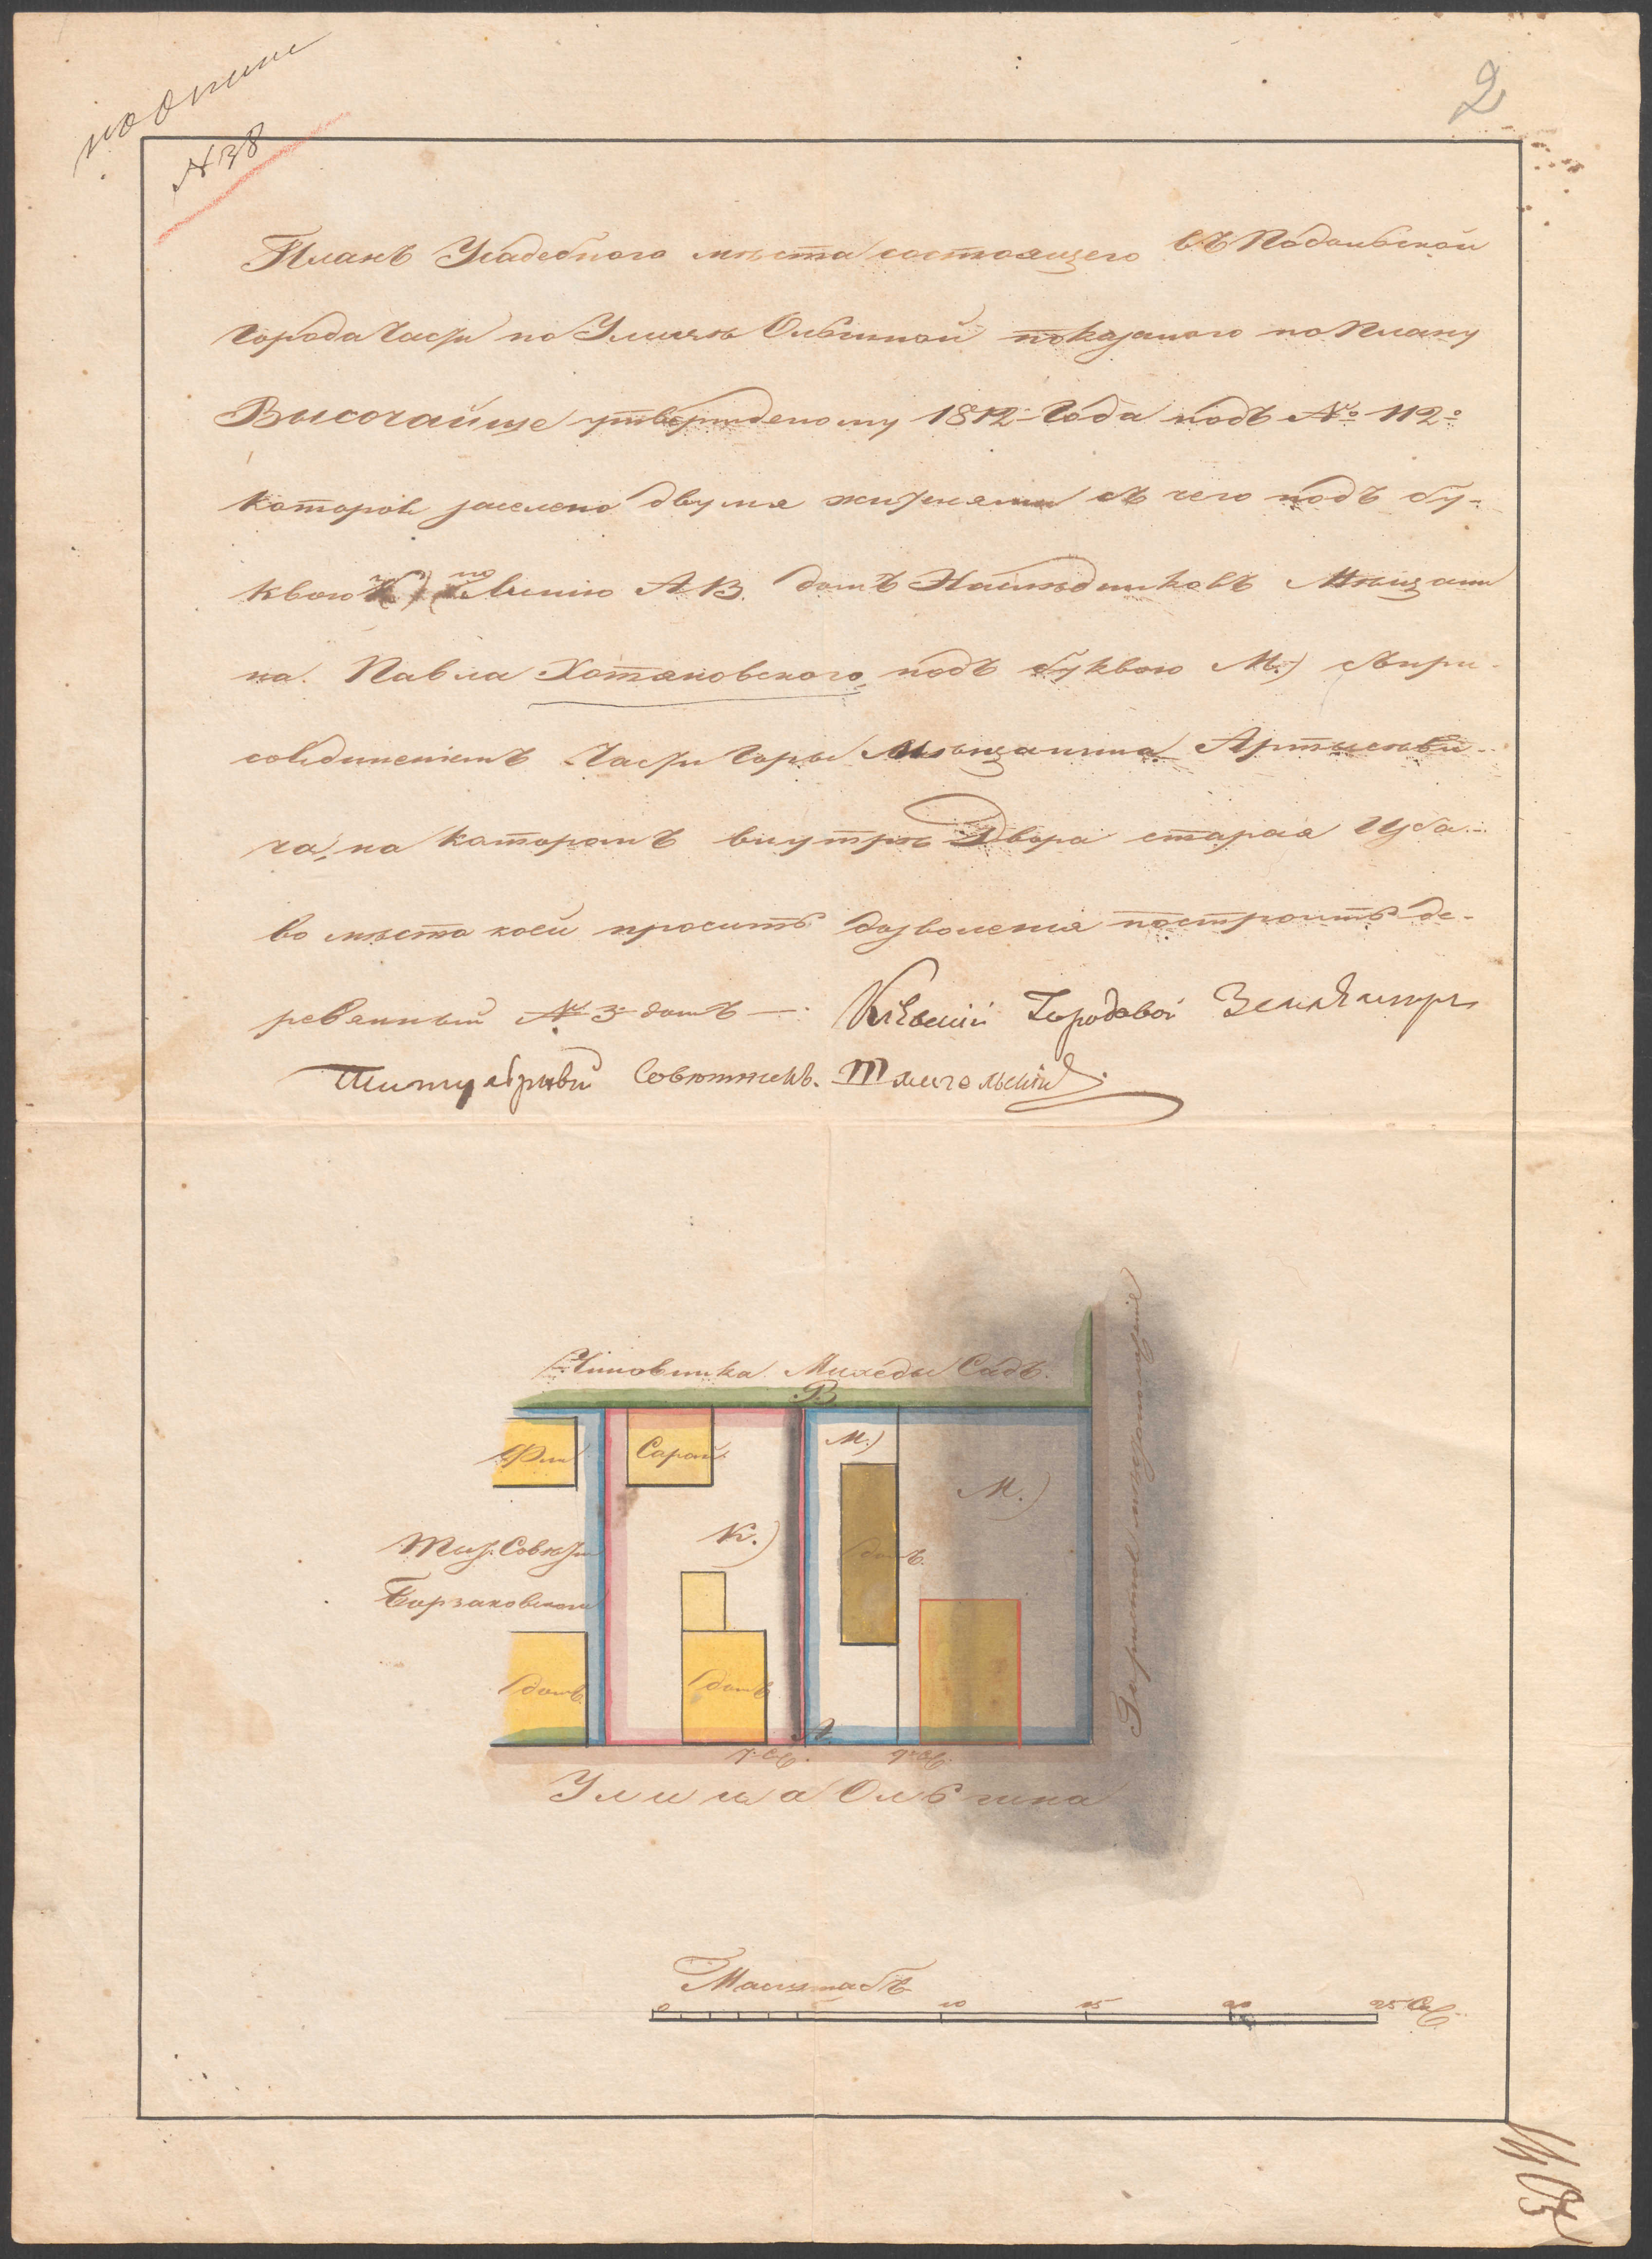 2
№ 38
Планъ Усадебного мѣста состоящего въ Подольской
Города Части по Улицѣ Ольгиной показаного по Плану
Высочайше утвержденому 1812 Года подъ № 112
которое заселено двумя жителями съ чего подъ бу-
квою К) по Линiю АВ. домъ Наслѣдниковъ Мѣщани
на Павла Хотяновского, подъ буквою М.) съ при-
соединенiемъ Части Горы Мѣщанина Артемови-
ча, на которомъ внутрѣ Двора старая Изба
во мѣсто коей проситъ дозволения построить де-
ревянный № 3 домъ —. Кiевскiй Городовой Землемѣръ
Титулярный Совѣтникъ
Чиновника Михеды Садъ.
В
Фли
Сарай
М.)
М.)
К.)
Тит. Совѣт
Борзаковского
домъ
домъ
домъ
домъ
А
Улица Ольгина
Масштабъ
0 5 10 15 20 25 Саж.